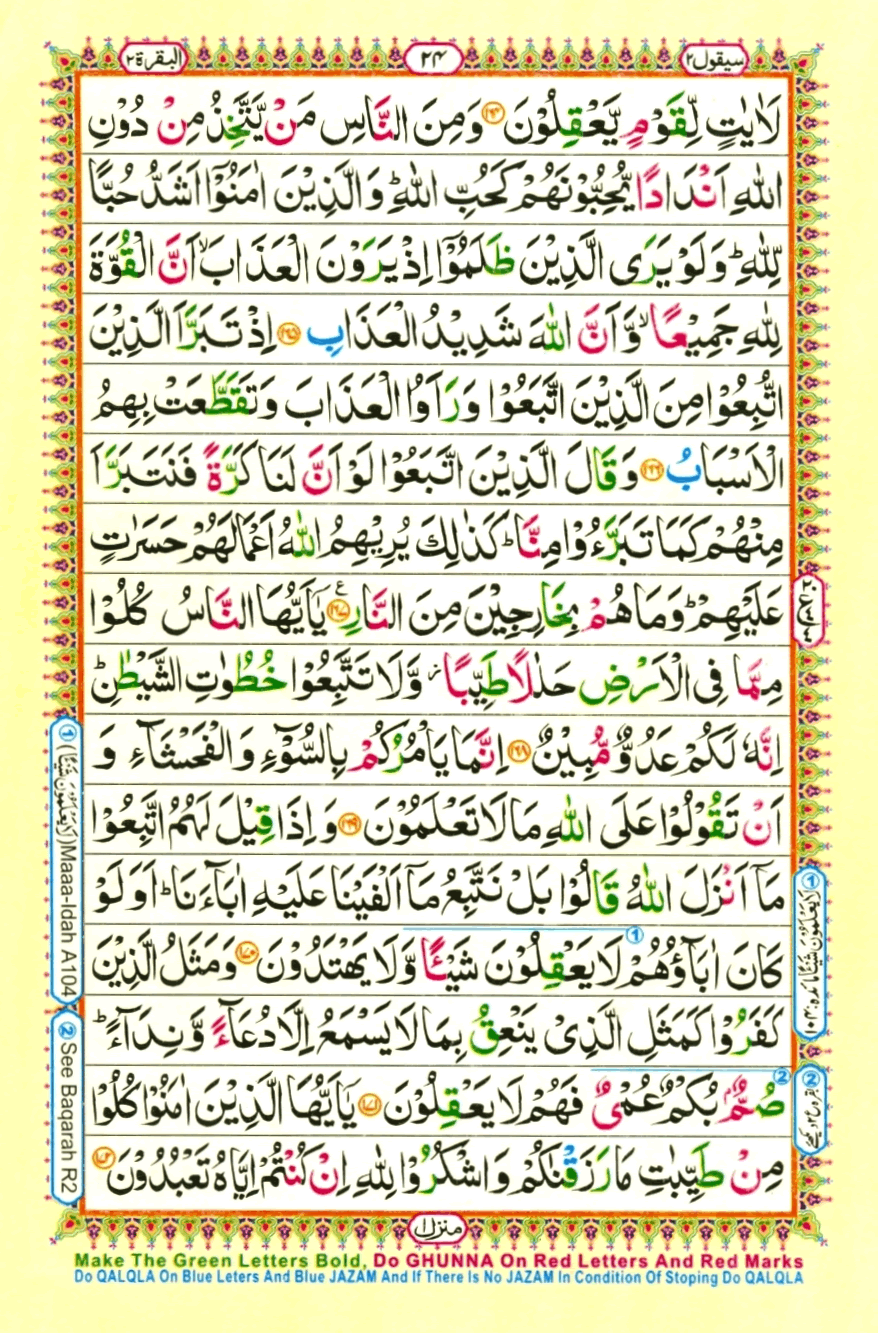 سیقول۲
۲۴
البقرة۲
لَاٰیٰتٍ لِّقَوْمٍ یَّعْقِلُوْنَ ﴿۱۶۴﴾ وَمِنَ النَّاسِ مَنْ یَّتَّخِذُ مِنْ دُوْنِ
اللّٰهِ اَنْدَادًا یُّحِبُّوْنَهُمْ كَحُبِّ اللّٰهِ ؕ وَالَّذِیْنَ اٰمَنُوْۤا اَشَدُّ حُبًّا
لِّلّٰهِ ؕ وَلَوْ یَرَی الَّذِیْنَ ظَلَمُوْۤا اِذْ یَرَوْنَ الْعَذَابَ ۙ اَنَّ الْقُوَّةَ
لِلّٰهِ جَمِیْعًا ۙ وَّاَنَّ اللّٰهَ شَدِیْدُ الْعَذَابِ ﴿۱۶۵﴾ اِذْ تَبَرَّاَ الَّذِیْنَ
اتُّبِعُوْا مِنَ الَّذِیْنَ اتَّبَعُوْا وَرَاَوُا الْعَذَابَ وَتَقَطَّعَتْ بِهِمُ
الْاَسْبَابُ ﴿۱۶۶﴾ وَقَالَ الَّذِیْنَ اتَّبَعُوْا لَوْ اَنَّ لَنَا كَرَّةً فَنَتَبَرَّاَ
مِنْهُمْ كَمَا تَبَرَّءُوْا مِنَّا ؕ كَذٰلِكَ یُرِیْهِمُ اللّٰهُ اَعْمَالَهُمْ حَسَرٰتٍ
عَلَیْهِمْ ؕ وَمَا هُمْ بِخَارِجِیْنَ مِنَ النَّارِ ﴿۱۶۷﴾ ع یٰۤاَیُّهَا النَّاسُ كُلُوْا
مِمَّا فِی الْاَرْضِ حَلٰلًا طَیِّبًا ۖؗ وَّلَا تَتَّبِعُوْا خُطُوٰتِ الشَّیْطٰنِ ؕ
اِنَّهٗ لَكُمْ عَدُوٌّ مُّبِیْنٌ ﴿۱۶۸﴾ اِنَّمَا یَاْمُرُكُمْ بِالسُّوْٓءِ وَالْفَحْشَآءِ وَ
اَنْ تَقُوْلُوْا عَلَی اللّٰهِ مَا لَا تَعْلَمُوْنَ ﴿۱۶۹﴾ وَاِذَا قِیْلَ لَهُمُ اتَّبِعُوْا
مَاۤ اَنْزَلَ اللّٰهُ قَالُوْا بَلْ نَتَّبِعُ مَاۤ اَلْفَیْنَا عَلَیْهِ اٰبَآءَنَا ؕ اَوَلَوْ
كَانَ اٰبَآؤُهُمْ لَا یَعْقِلُوْنَ شَیْـًٔا وَّلَا یَهْتَدُوْنَ ﴿۱۷۰﴾ وَمَثَلُ الَّذِیْنَ
كَفَرُوْا كَمَثَلِ الَّذِیْ یَنْعِقُ بِمَا لَا یَسْمَعُ اِلَّا دُعَآءً وَّنِدَآءً ؕ
صُمٌّۢ بُكْمٌ عُمْیٌ فَهُمْ لَا یَعْقِلُوْنَ ﴿۱۷۱﴾ یٰۤاَیُّهَا الَّذِیْنَ اٰمَنُوْا كُلُوْا
مِنْ طَیِّبٰتِ مَا رَزَقْنٰكُمْ وَاشْكُرُوْا لِلّٰهِ اِنْ كُنْتُمْ اِیَّاهُ تَعْبُدُوْنَ ﴿۱۷۲﴾
① (لَا یَعْلَمُوْنَ شَیْـًٔا) Maaa-Idah A104
② See Baqarah R2
① لَا یَعْلَمُوْنَ شَیْـًٔا مائدہ:۱۰۴
②
منزل۱
Make The Green Letters Bold, Do GHUNNA On Red Letters And Red Marks
Do QALQLA On Blue Leters And Blue JAZAM And If There Is No JAZAM In Condition Of Stoping Do QALQLA